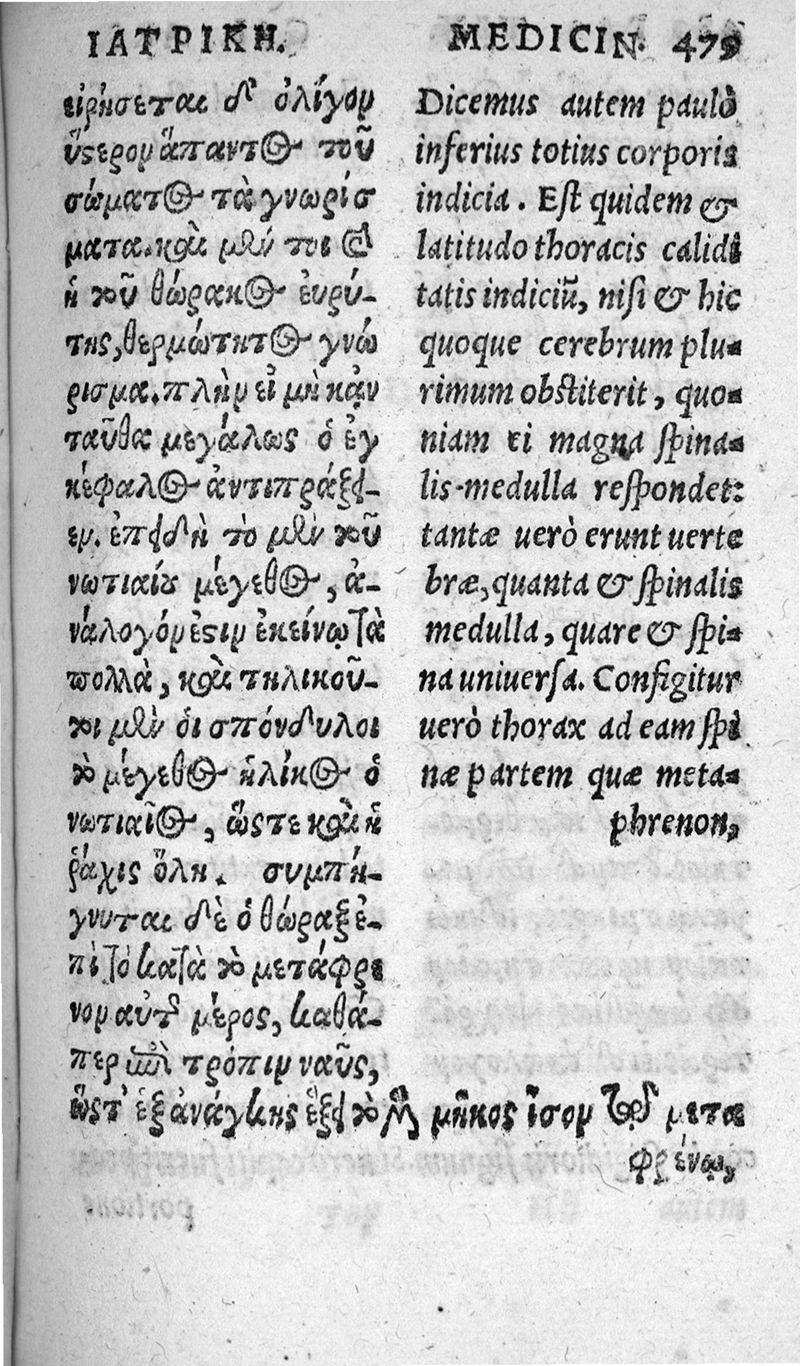 ΙΑΤΡΙΚΗ.
εἰρήσεται δ' ὀλίγον
ὕστερον ἅπαντος τοῦ
σώματος τὰ γνωρίσ
ματα. καὶ μέν τοι καὶ
ἡ τοῦ θώρακος ἐυρύ-
της, θερμώτητος γνώ
ρισμα. πλὴν εἰ μὴ κᾀν
ταῦθα μεγάλως ὁ ἐγ
κέφαλος ἀντιπράξει-
εν. ἐπειδὴ τὸ μὲν τοῦ
νωτιαίου μέγεθος, ἀ-
νάλογόν ἐστιν ἐκείνῳ τὰ
πολλὰ, καὶ τηλικοῦ-
τοι μὲν ὁι σπόνδυλοι
τὸ μέγεθος ἡλίκος ὁ
νωτιαῖος, ὥστε καὶ ἡ
ῥάχις ὅλη. συμπή-
γνυται δὲ ὁ θώραξ ἐ-
πὶ τὸ κατὰ τὸ μετάφρε
νον αὐτοῦ μέρος, καθά-
περ ἐπὶ τρόπιν ναῦς,
ὥστ' ἐξ ἀνάγκης ἕξει τὸ μὲν μῆκος ἴσον τῷ μετα
φρένῳ,
MEDICIN. 479
Dicemus autem paulò
inferius totius corporis
indicia. Est quidem &
latitudo thoracis calidi
tatis indiciũ, nisi & hic
quoque cerebrum plu-
rimum obstiterit, quo-
niam ei magna spina-
lis medulla respondet:
tantæ uerò erunt uerte
bræ, quanta & spinalis
medulla, quare & spi-
na uniuersa. Configitur
uerò thorax ad eam spi
næ partem quæ meta-
phrenon,